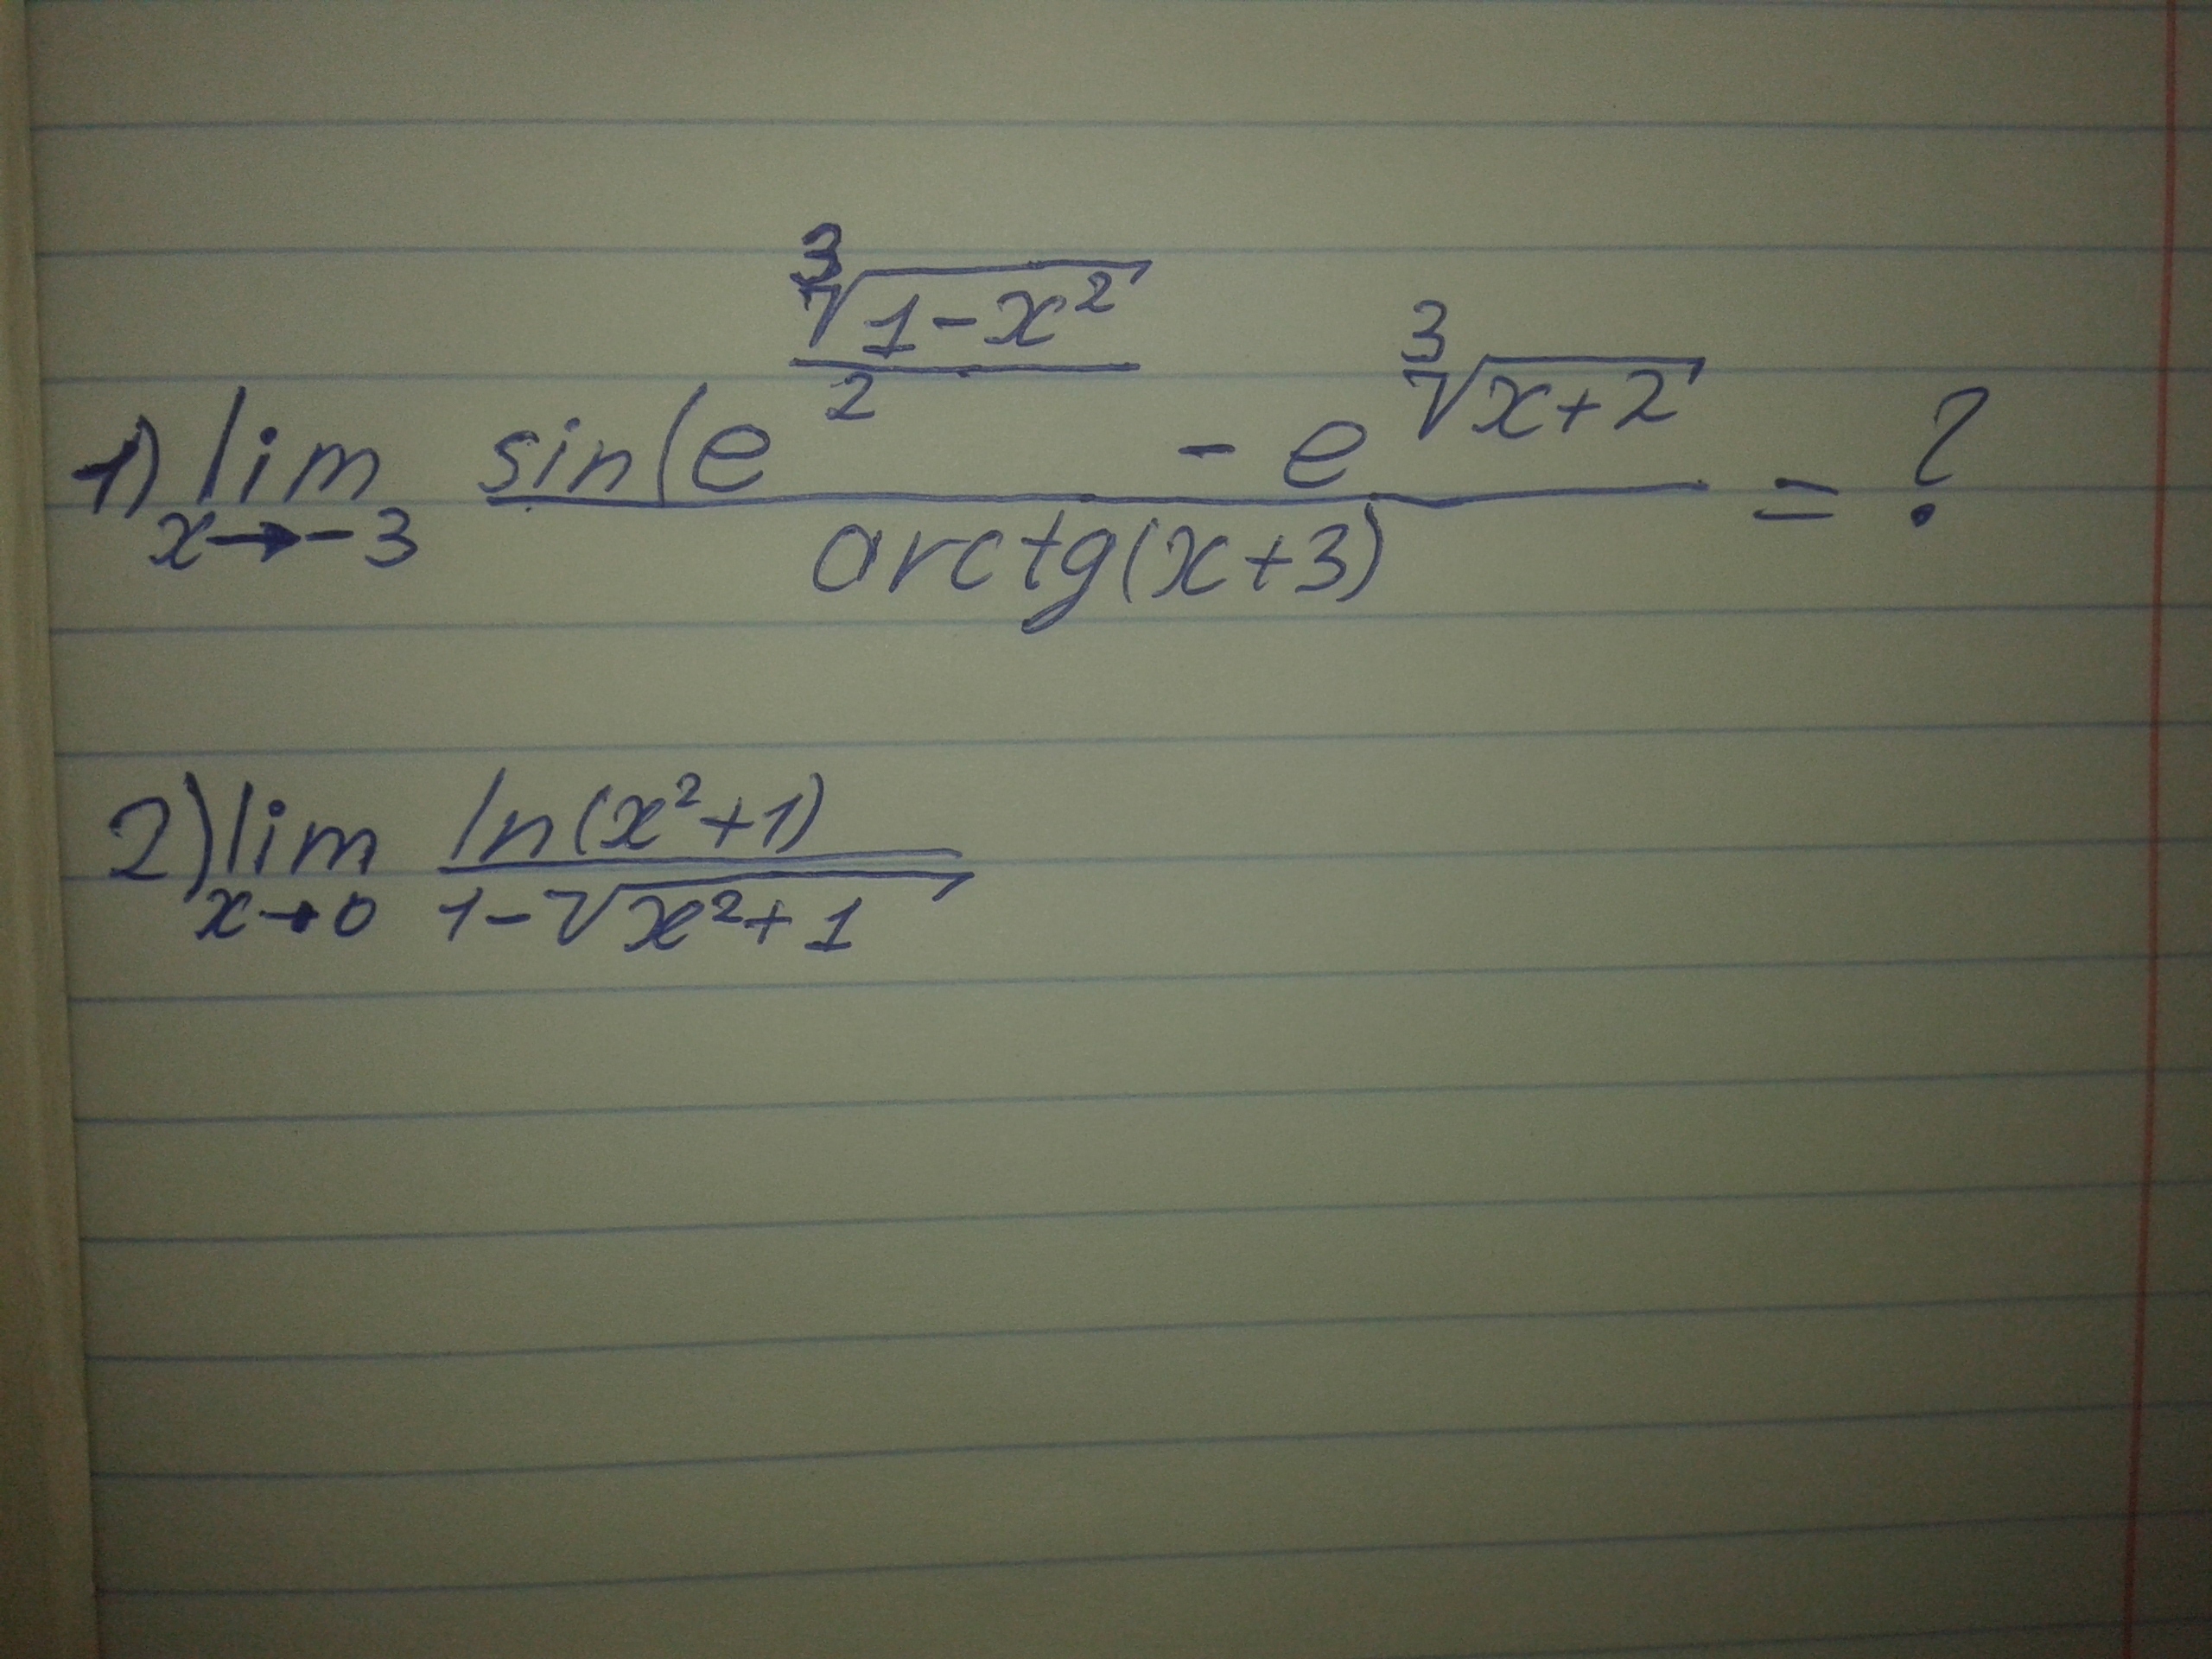 1) lim x→-3 sin(e^(∛(1-x²)/2) - e^∛(x+2) / arctg(x+3) = ?
2) lim x→0 ln(x²+1) / 1-√(x²+1)